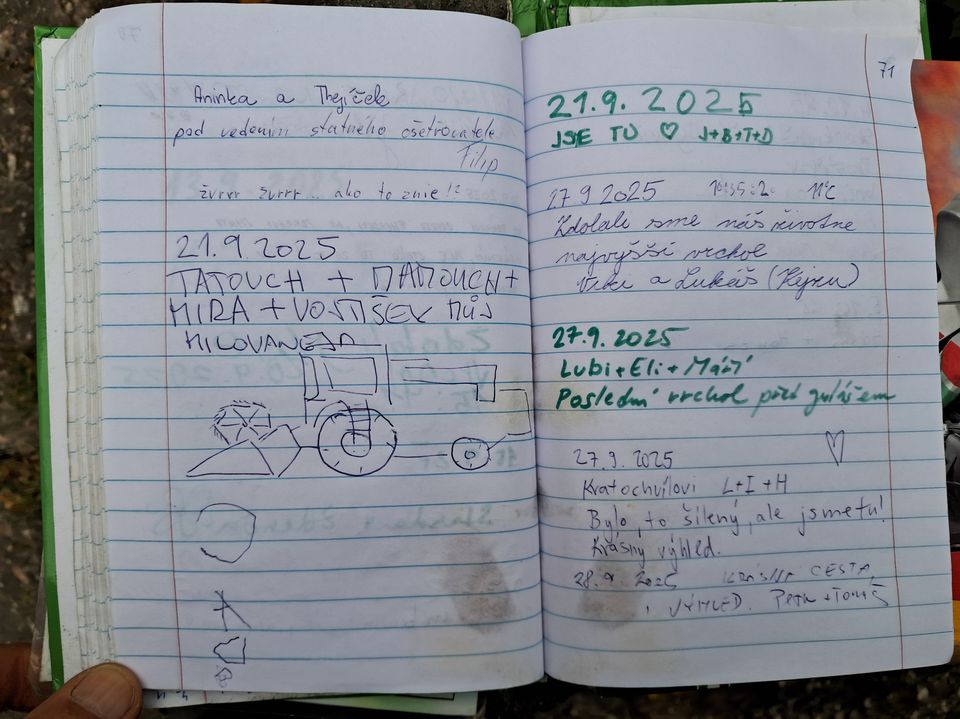 Aninka a
pod vedením statného ošetřovatele
Filip
žvrrr žvrrr... ako to znie!?
21.9.2025
TATOUCH + MAMOUCH +
MIRA + VOJTÍŠEK MŮJ
MILOVANEJ
71
21.9.2025
JSE TU ♡ J+B+T+D
27 9 2025 11°C
Zdolali sme náš životne
najvyšší vrchol
a Lukáš
27.9.2025
Lubi+Eli+
Poslední vrchol před gulášem
27.9.2025
Kratochvílovi L+I+H
Bylo to šílený, ale jsme tu!
Krásný výhled.
28.9 2025 KRÁSNÁ CESTA
VÝHLED. Petr + Tomáš